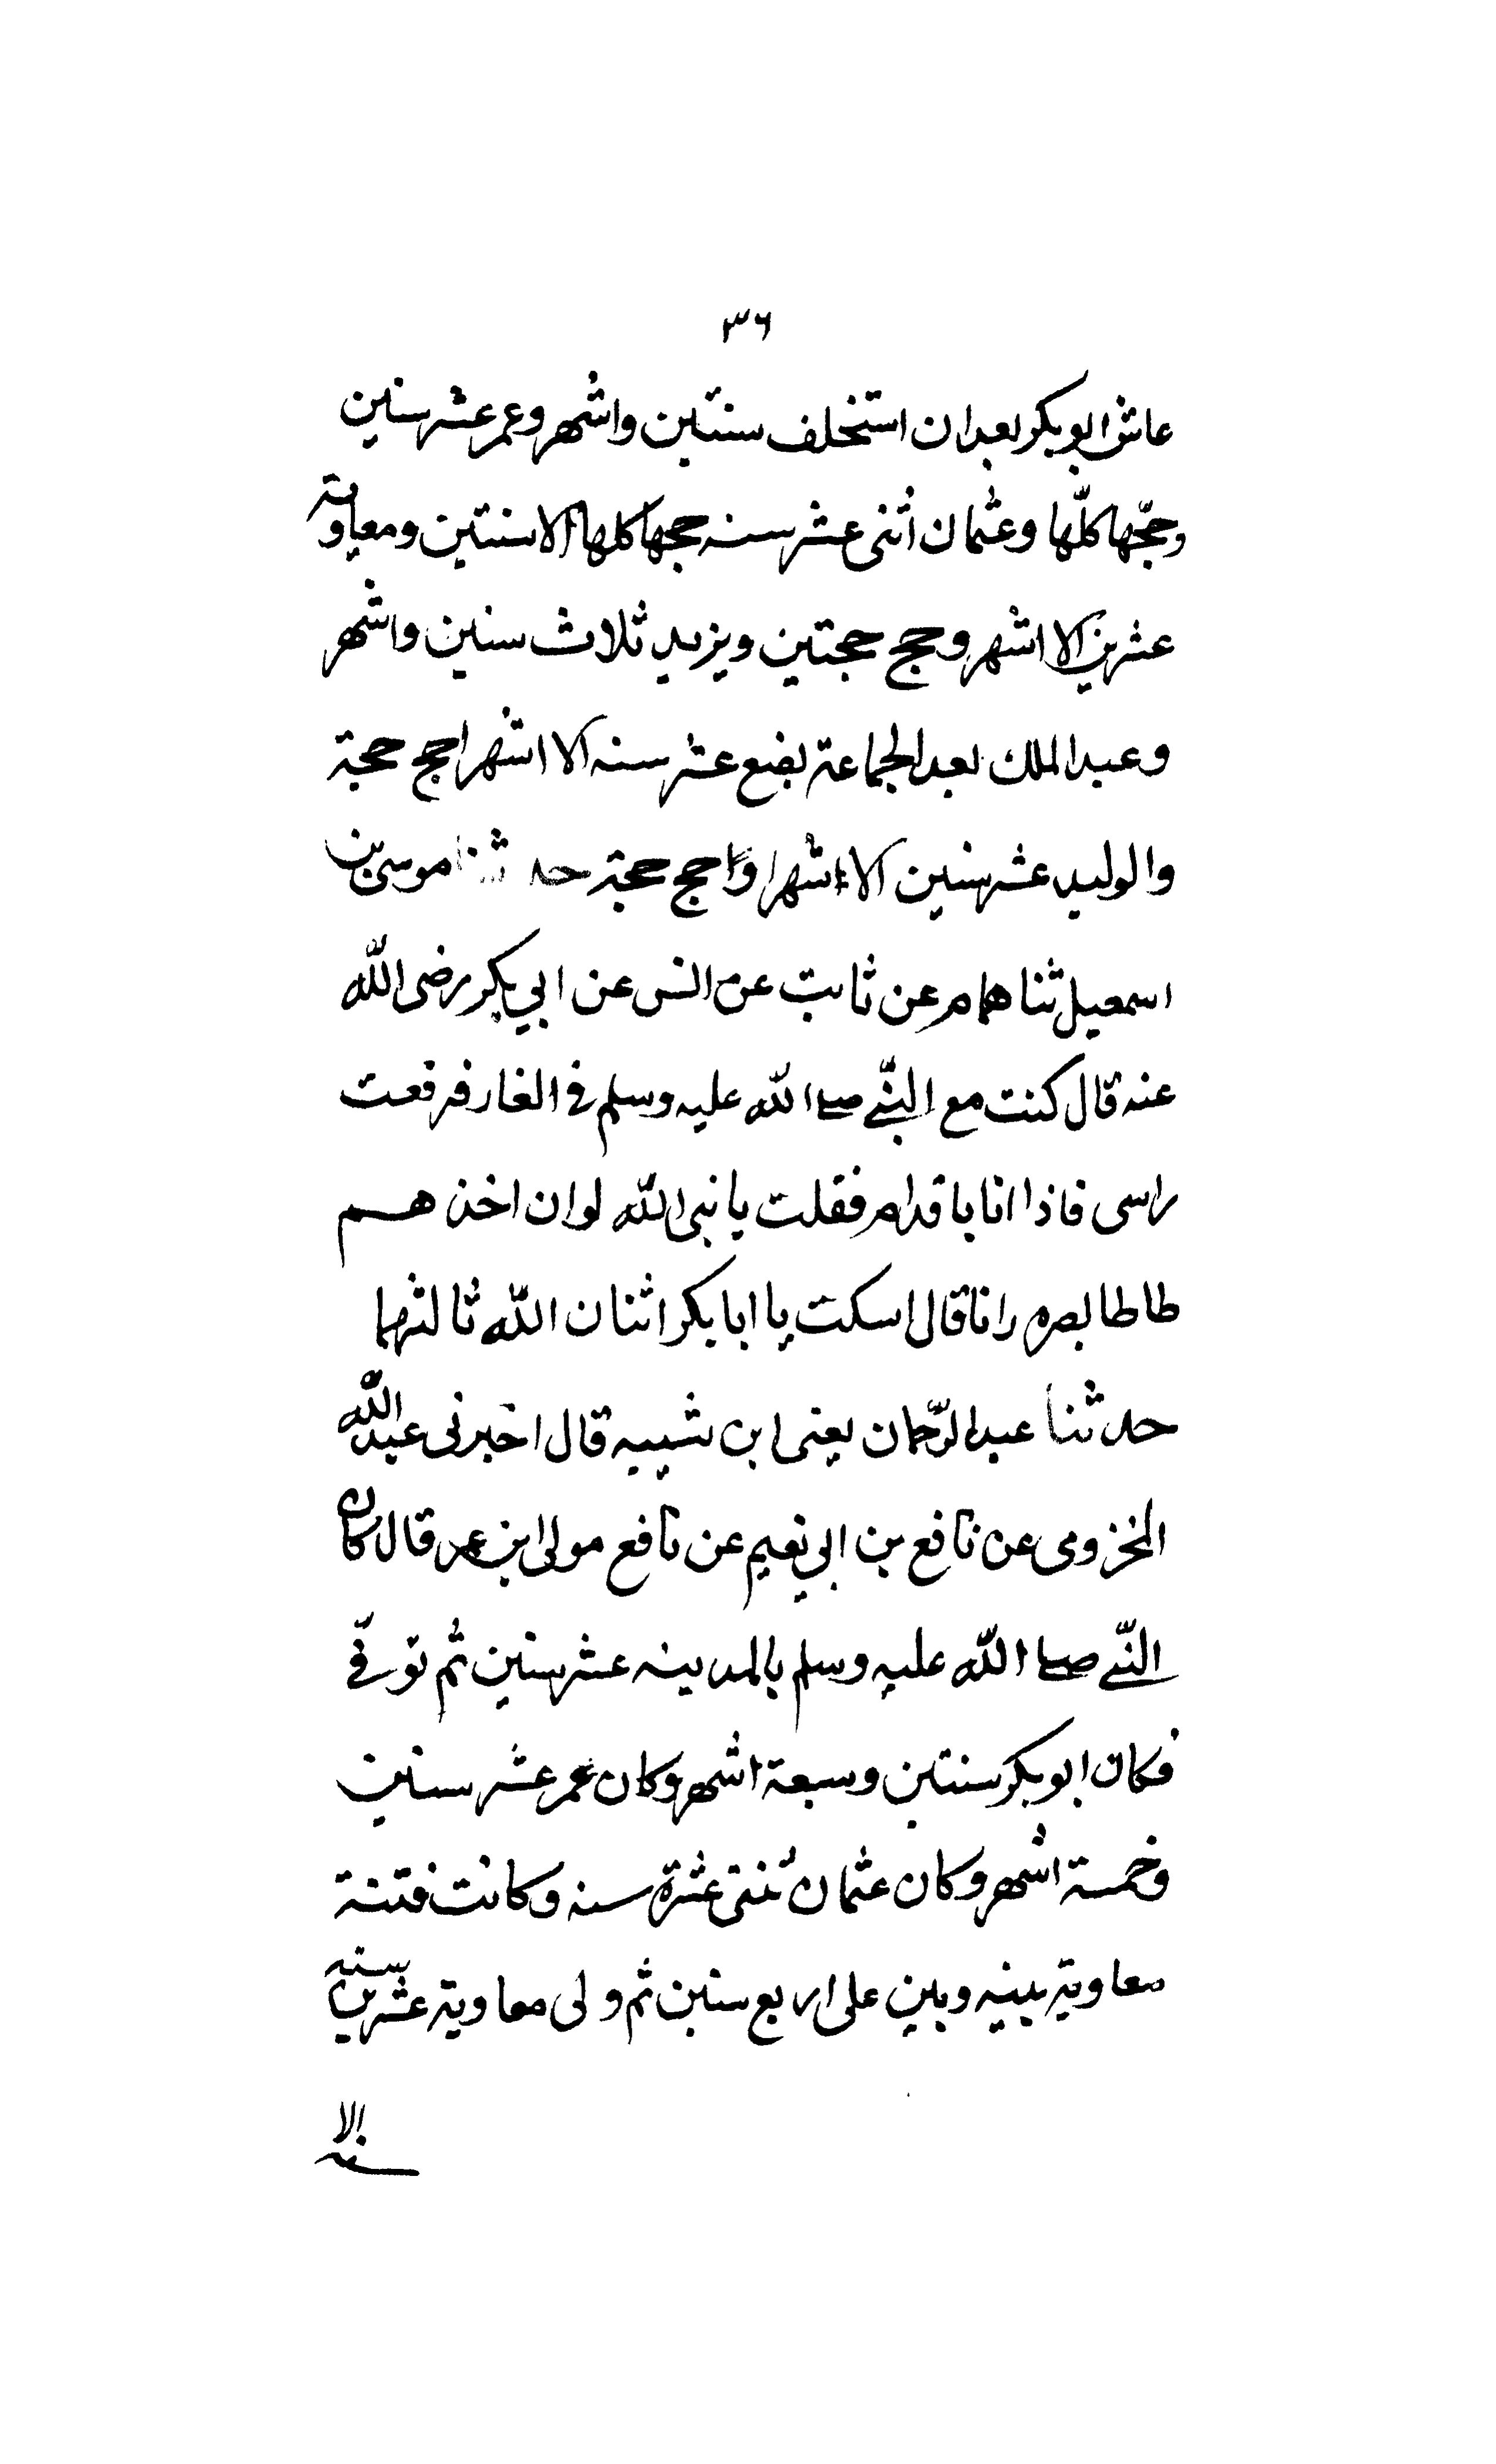 ٣٦
عاش ابو بكر بعد ان استخلف سنتين واشهر وعمر عشر سنين
وحجّها كلّها وعثمان اثنى عشر سنه حجها كلها الا سنتين ومعاوية
عشرين الا اشهر وحج حجتين ويزيد ثلاث سنين واشهر
وعبد الملك بعد الجماعة بضع عشر سنه الا اشهرا حج حجة
والوليد عشر سنين الا اشهرا واحج حجة حد ثنا موسى بن
اسمعيل ثنا همام عن ثابت عن انس عن ابي بكر رضى الله
عنه قال كنت مع النبّي صلى الله عليه وسلم في الغار فرفعت
راسى فاذا انا باقدام فقلت يا نبى الله لو ان احدهم
طاطا بصره رانا قال اسكت يا ابا بكر اثنان الله ثالثهما
حدثنا عبد الرّحمان يعنى ابن شيبه قال اخبرنى عبد الله
المخزومى عن نافع بن ابي نعيم عن نافع مولى ابن عمر قال كان
النبّي صلى الله عليه وسلم بالمدينه عشر سنين ثم توفّي
فكان ابو بكر سنتين وسبعة اشهر وكان عمر عشر سنين
وخمسة اشهر وكان عثمان ثنتى عشرة سنه وكانت فتنة
معاوية بينه وبين على اربع سنين ثم ولى معاوية عشرين سنه
الا
سنه